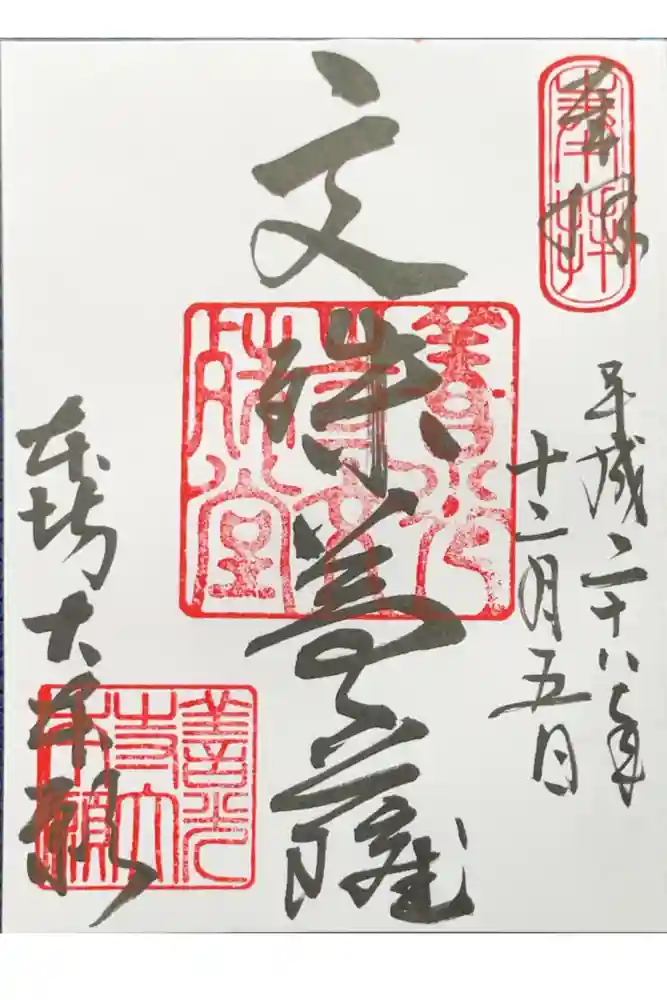 奉拝
奉拝
平成二十八年
十二月五日
文殊菩薩
善光
寺文
殊堂
本坊大本願
善光
寺大
本願